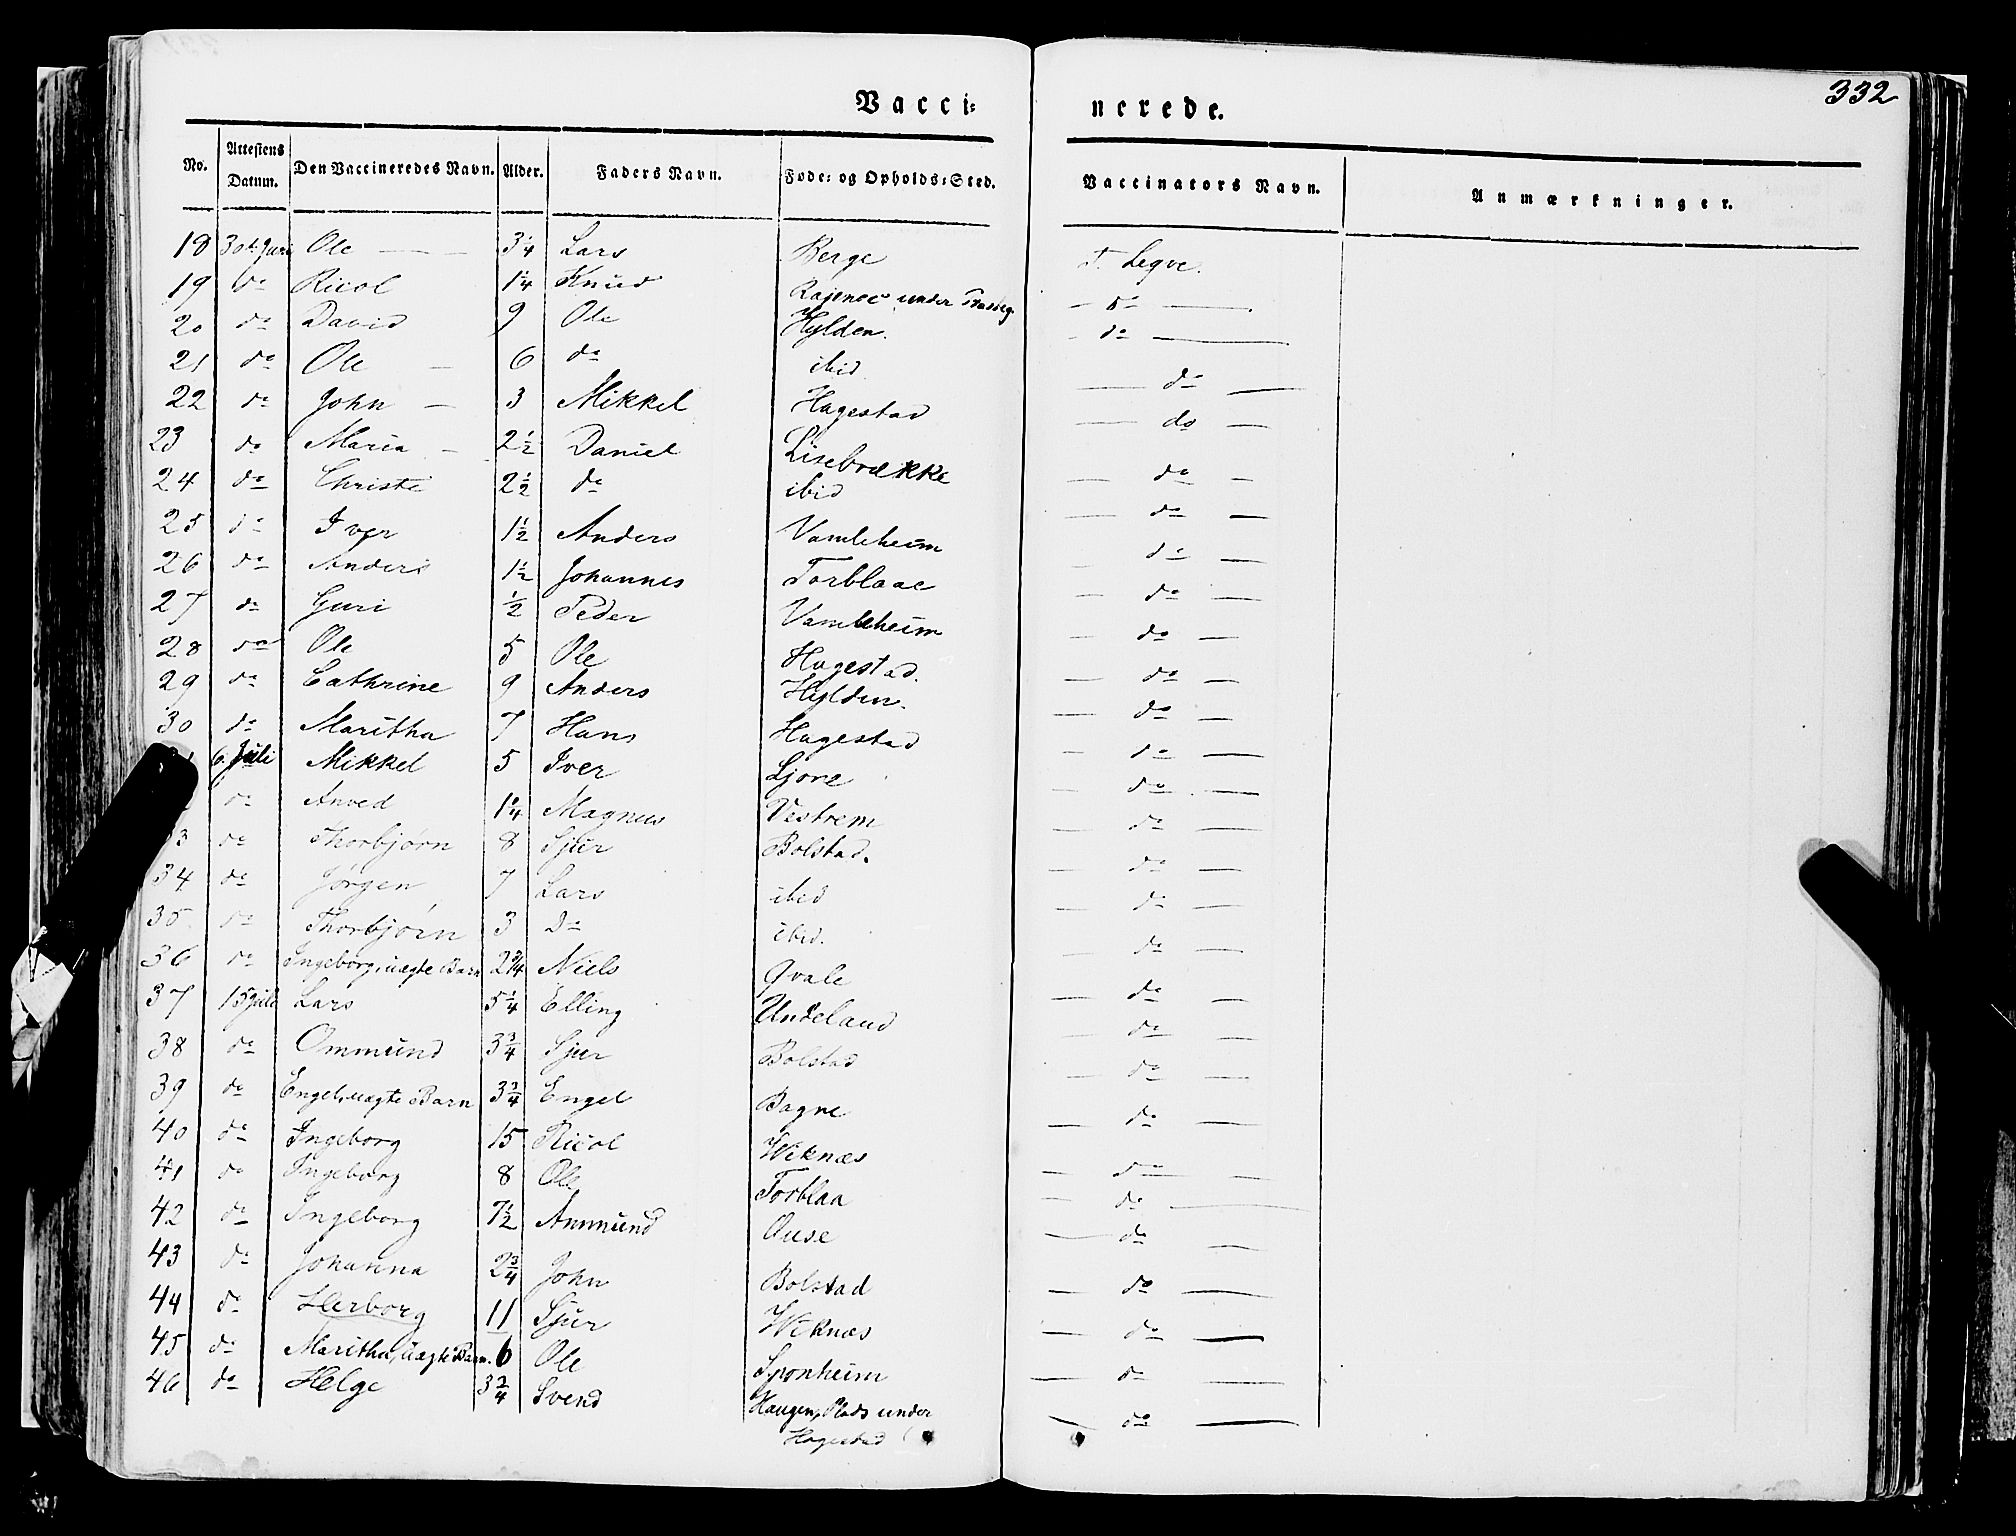 332
Vacci= nerede.
No. Attestens Datum. Den Vaccineredes Navn. Alder. Faders Navn. Føde= og Opholds=Sted. Vaccinators Navn. Anmærkninger.
18 30te Juni Ole — 3 1/4 Lars Berge T. Legve.
19 do Ricol 1 1/4 Knud under — do —
20 do David 9 Ole Hylden. — do —
21 do Ole — 6 do ibid — do —
22 do John — 3 Mikkel Hagestad — do —
23 do Maria — 2 1/2 Daniel Lisebrække — do —
24 do Christi 2 1/2 do ibid — do —
25 do Iver 1 1/2 Anders Vambeheim — do —
26 do Anders 1 1/2 Johannes Torblaae — do —
27 do Guri 1/2 Peder Vambeheim — do —
28 do Ole 5 Ole Hagestad. — do —
29 do Cathrine 9 Anders Hylden. — do —
30 do Maritha 7 Hans Hagestad — do —
6. Juli Mikkel 5 Iver Ljone — do —
do Anved 1 1/4 Magnus Vestrem — do —
3 do Thorbjørn 8 Sjur Bolstad. — do —
34 do Jørgen 7 Lars ibid — do —
35 do Thorbjørn 3 Do ibid. — do —
36 do Ingeborg, uægte Barn 2 3/4 Niels Qvale — do —
37 15 Juli Lars 5 1/4 Elling Undeland — do —
38 do Ommund 3 3/4 Sjur Bolstad — do —
39 do Engel, uægte Barn 3 3/4 Engel Bagne — do —
40 do Ingeborg 15 Ricol Wiknæs — do —
41 do Ingeborg 8 Ole Torblaa — do —
42 do Ingeborg 7 1/2 Ammund Ouse — do —
43 do Johanna 2 3/4 John Bolstad — do —
44 do Herborg 11 Sjur Wiknæs — do —
45 do Maritha, uægte Barn. 6 Ole Sponheim — do —
46 do Helge 3 3/4 Svend Haugen, Plads under — do —
Hagestad